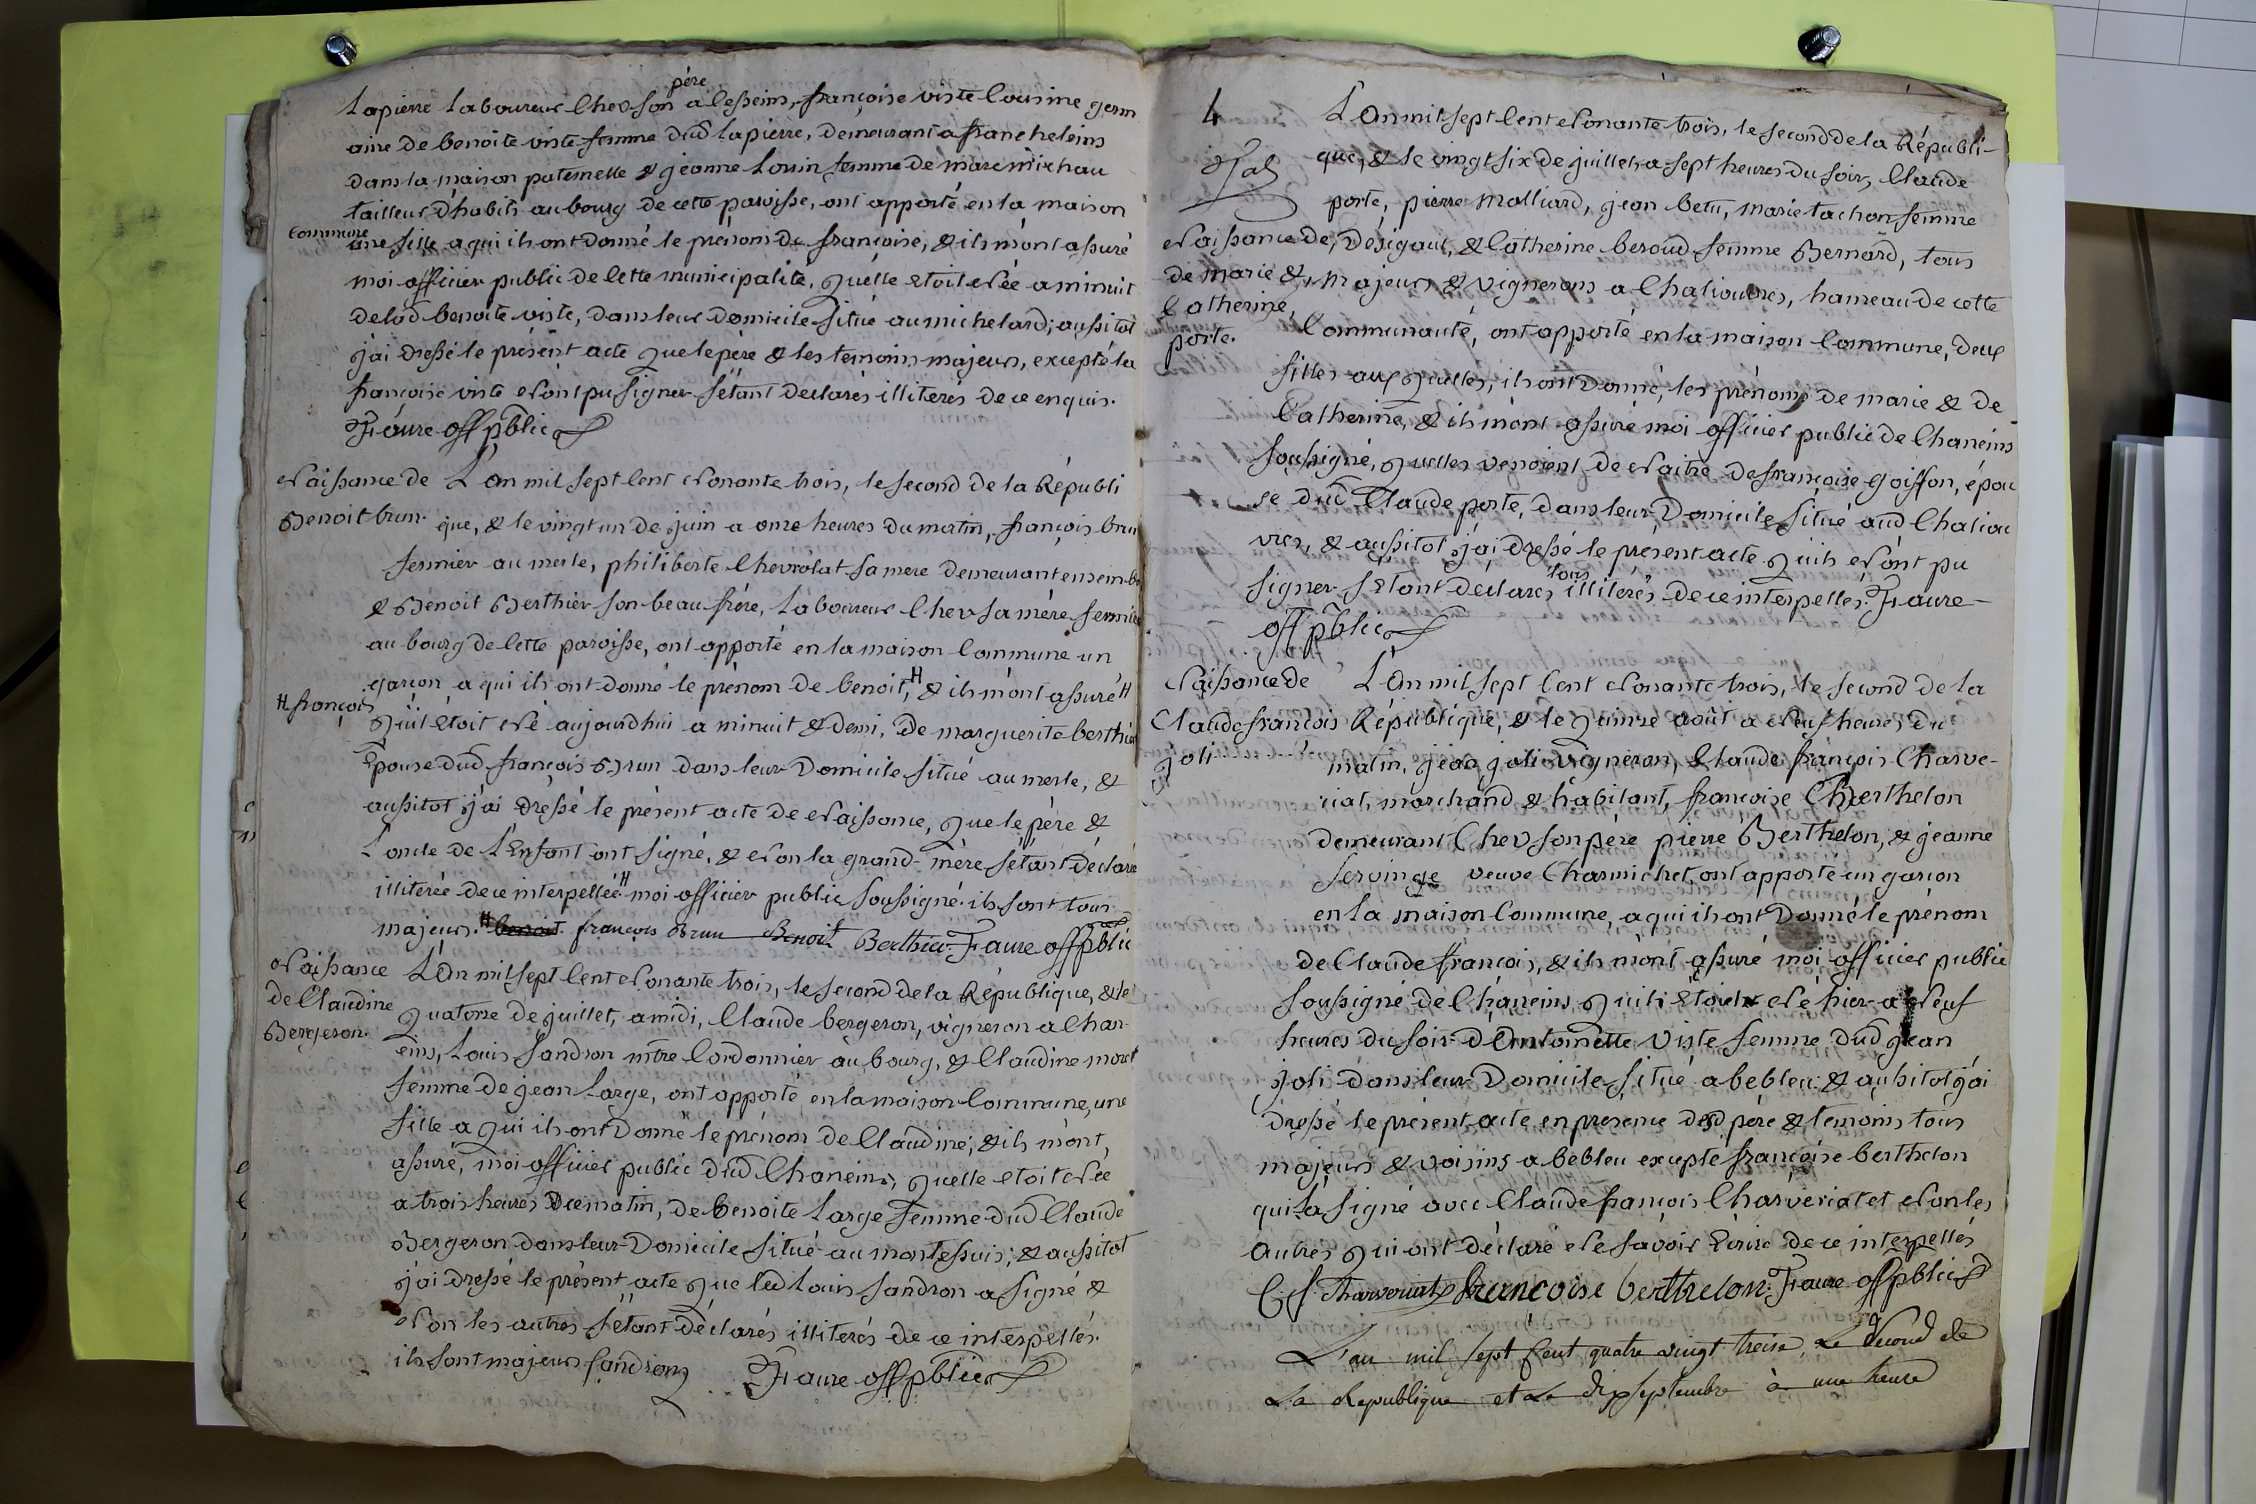 père
Lapierre Laboureur Chez son a Cesseins, françoise viste Cousine germ
aine de benoite viste femme dud Lapierre, demeurant a francheleins
dans la maison paternelle & jeanne Louin femme de marc michau
tailleur d'habits au bourg de cette paroisse, ont apporté en la maison
Commune
une fille a qui ils ont donné le prénom de françoise, & ils m'ont assuré
moi officier public de Cette municipalité, quelle etoit née a minuit
de lad benoite viste, dans leur domicile situé au michelard; aussitot
j'ai dressé le présent acte que le père & les temoins majeurs, excepté la
françoise viste n'ont pu signer s'étant declarés illiterés de ce enquis.
Faure off pblic
Naissance de
Benoit brun.
L'an mil sept Cent Nonante trois, le second de la Républi
que, & le vingt un de juin a onze heures du matin, françois brun
fermier au merle, philiberte Chevrolat sa mere demeurant ensemble
& Benoit Berthier son beau frére, Laboureur Chez sa mère fermière
au bourg de Cette paroisse, ont apporté en la maison Commune un
garçon a qui ils ont donné le prénom de benoit, H & ils m'ont assuré H
H françois
quil étoit né aujourdhui a minuit & demi, De marguerite berthier
Epouse dud françois Brun dans leur Domicile situé au merle, &
aussitot j'ai dréssé le présent acte de Naissance, que le père &
L'oncle de L'Enfant ont signé, & Non la grand-mère s'étant déclarée
illiterée de ce interpellée H moi officier public soussigné. ils sont tous
majeurs. H benoit françois Brun Benoit Berthier Faure off pblic
Naissance
de Claudine
Bergeron.
L'An mil sept Cent Nonante trois, le second de la République, & le
quatorze de juillet, a midi, Claude bergeron, vigneron a Chan-
eins, Louis Sandron mtre Cordonnier au bourg, & Claudine morel
femme de jean Large, ont apporté en la maison Commune, une
fille a qui ils ont Donné le prénom de Claudine; & ils m'ont
assuré, moi officier public dud Chaneins, quelle etoit Née
a trois heures Du matin, de benoite Large femme dud Claude
Bergeron dans leur Domicile situé au montessuis; & aussitot
j'ai dressé le présent acte que led Louis Sandron a signé &
Non les autres s'étant déclarés illiterés de ce interpellés.
ils sont majeurs Sandron Faure off pblic
4
L'An mil sept Cent Nonante trois, le second de la Républi-
que, & le vingt six de juillet, a sept heures du soir, Claude
porte, pierre Malliard, jean betu, marie tachon femme
Naissance de
de marie &
Catherine,
porte.
Desigaud, & Catherine beroud femme Bernard, tous
Majeurs & vignerons a Chaliouvres, hameau de cette
Communauté, ont apporté en la maison Commune, deux
filles aux quelles, ils ont Donné, les prénoms de marie & de
Catherine, & ils m'ont assuré moi officier public de Chaneins
soussigné, quelles venoient de Naitre de françoise goiffon, épou
se dud Claude porte, dans leur Domicile situé aud Chaliou
vres, & aussitot j'ai dressé le présent acte quils N'ont pu
signer s'Etant déclarés tous illiterés de ce interpellés. Faure
off pblic
Naissance de
Claude françois
joli
L'An mil sept Cent Nonante trois, le second de la
République, & le quinze août a Neuf heures du
matin, jean joli vigneron, Claude françois Charve-
riat, marchand & habitant, françoise Berthelon
demeurant Chez son père pierre Berthelon, & jeanne
Servinge veuve Charmichet, ont apporté un garçon
en la maison Commune, a qui ils ont Donné le prénom
de Claude françois, & ils m'ont assuré moi officier public
soussigné de Chaneins quil étoit Né hier a Neuf
heures du soir D'Antoinette Viste femme dud jean
joli dans leur Domicile situé a bebleu & aussitot j'ai
dressé le présent acte en presence dud père & temoins tous
majeurs & voisins a bebleu excepté françoise berthelon
qui L'a signé avec Claude françois Charveriat et Non les
Autres qui ont déclaré Ne savoir Ecrire de ce interpellés
C f Charveriat françoise berthelon Faure off pblic
L'an mil sept Cent quatre vingt treise, Le second de
La Republique et Le dix septembre à une heure